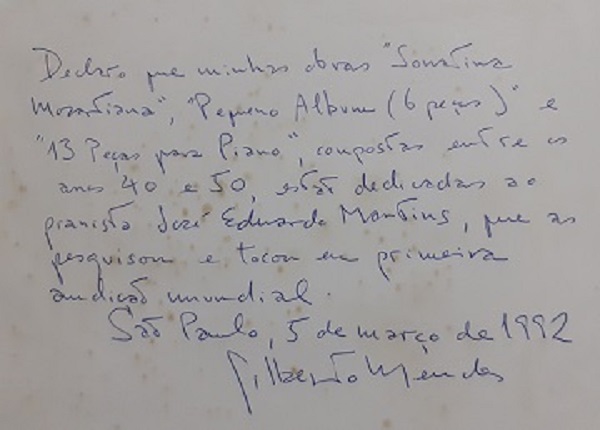 Declaro que minhas obras "Sonatina
Mozartiana", "Pequeno Album (6 peças)" e
"13 Peças para Piano", compostas entre os
anos 40 e 50, estão dedicadas ao
pianista José Eduardo Martins, que as
pesquisou e tocou em primeira
audição mundial.
São Paulo, 5 de março de 1992
Gilberto Mendes